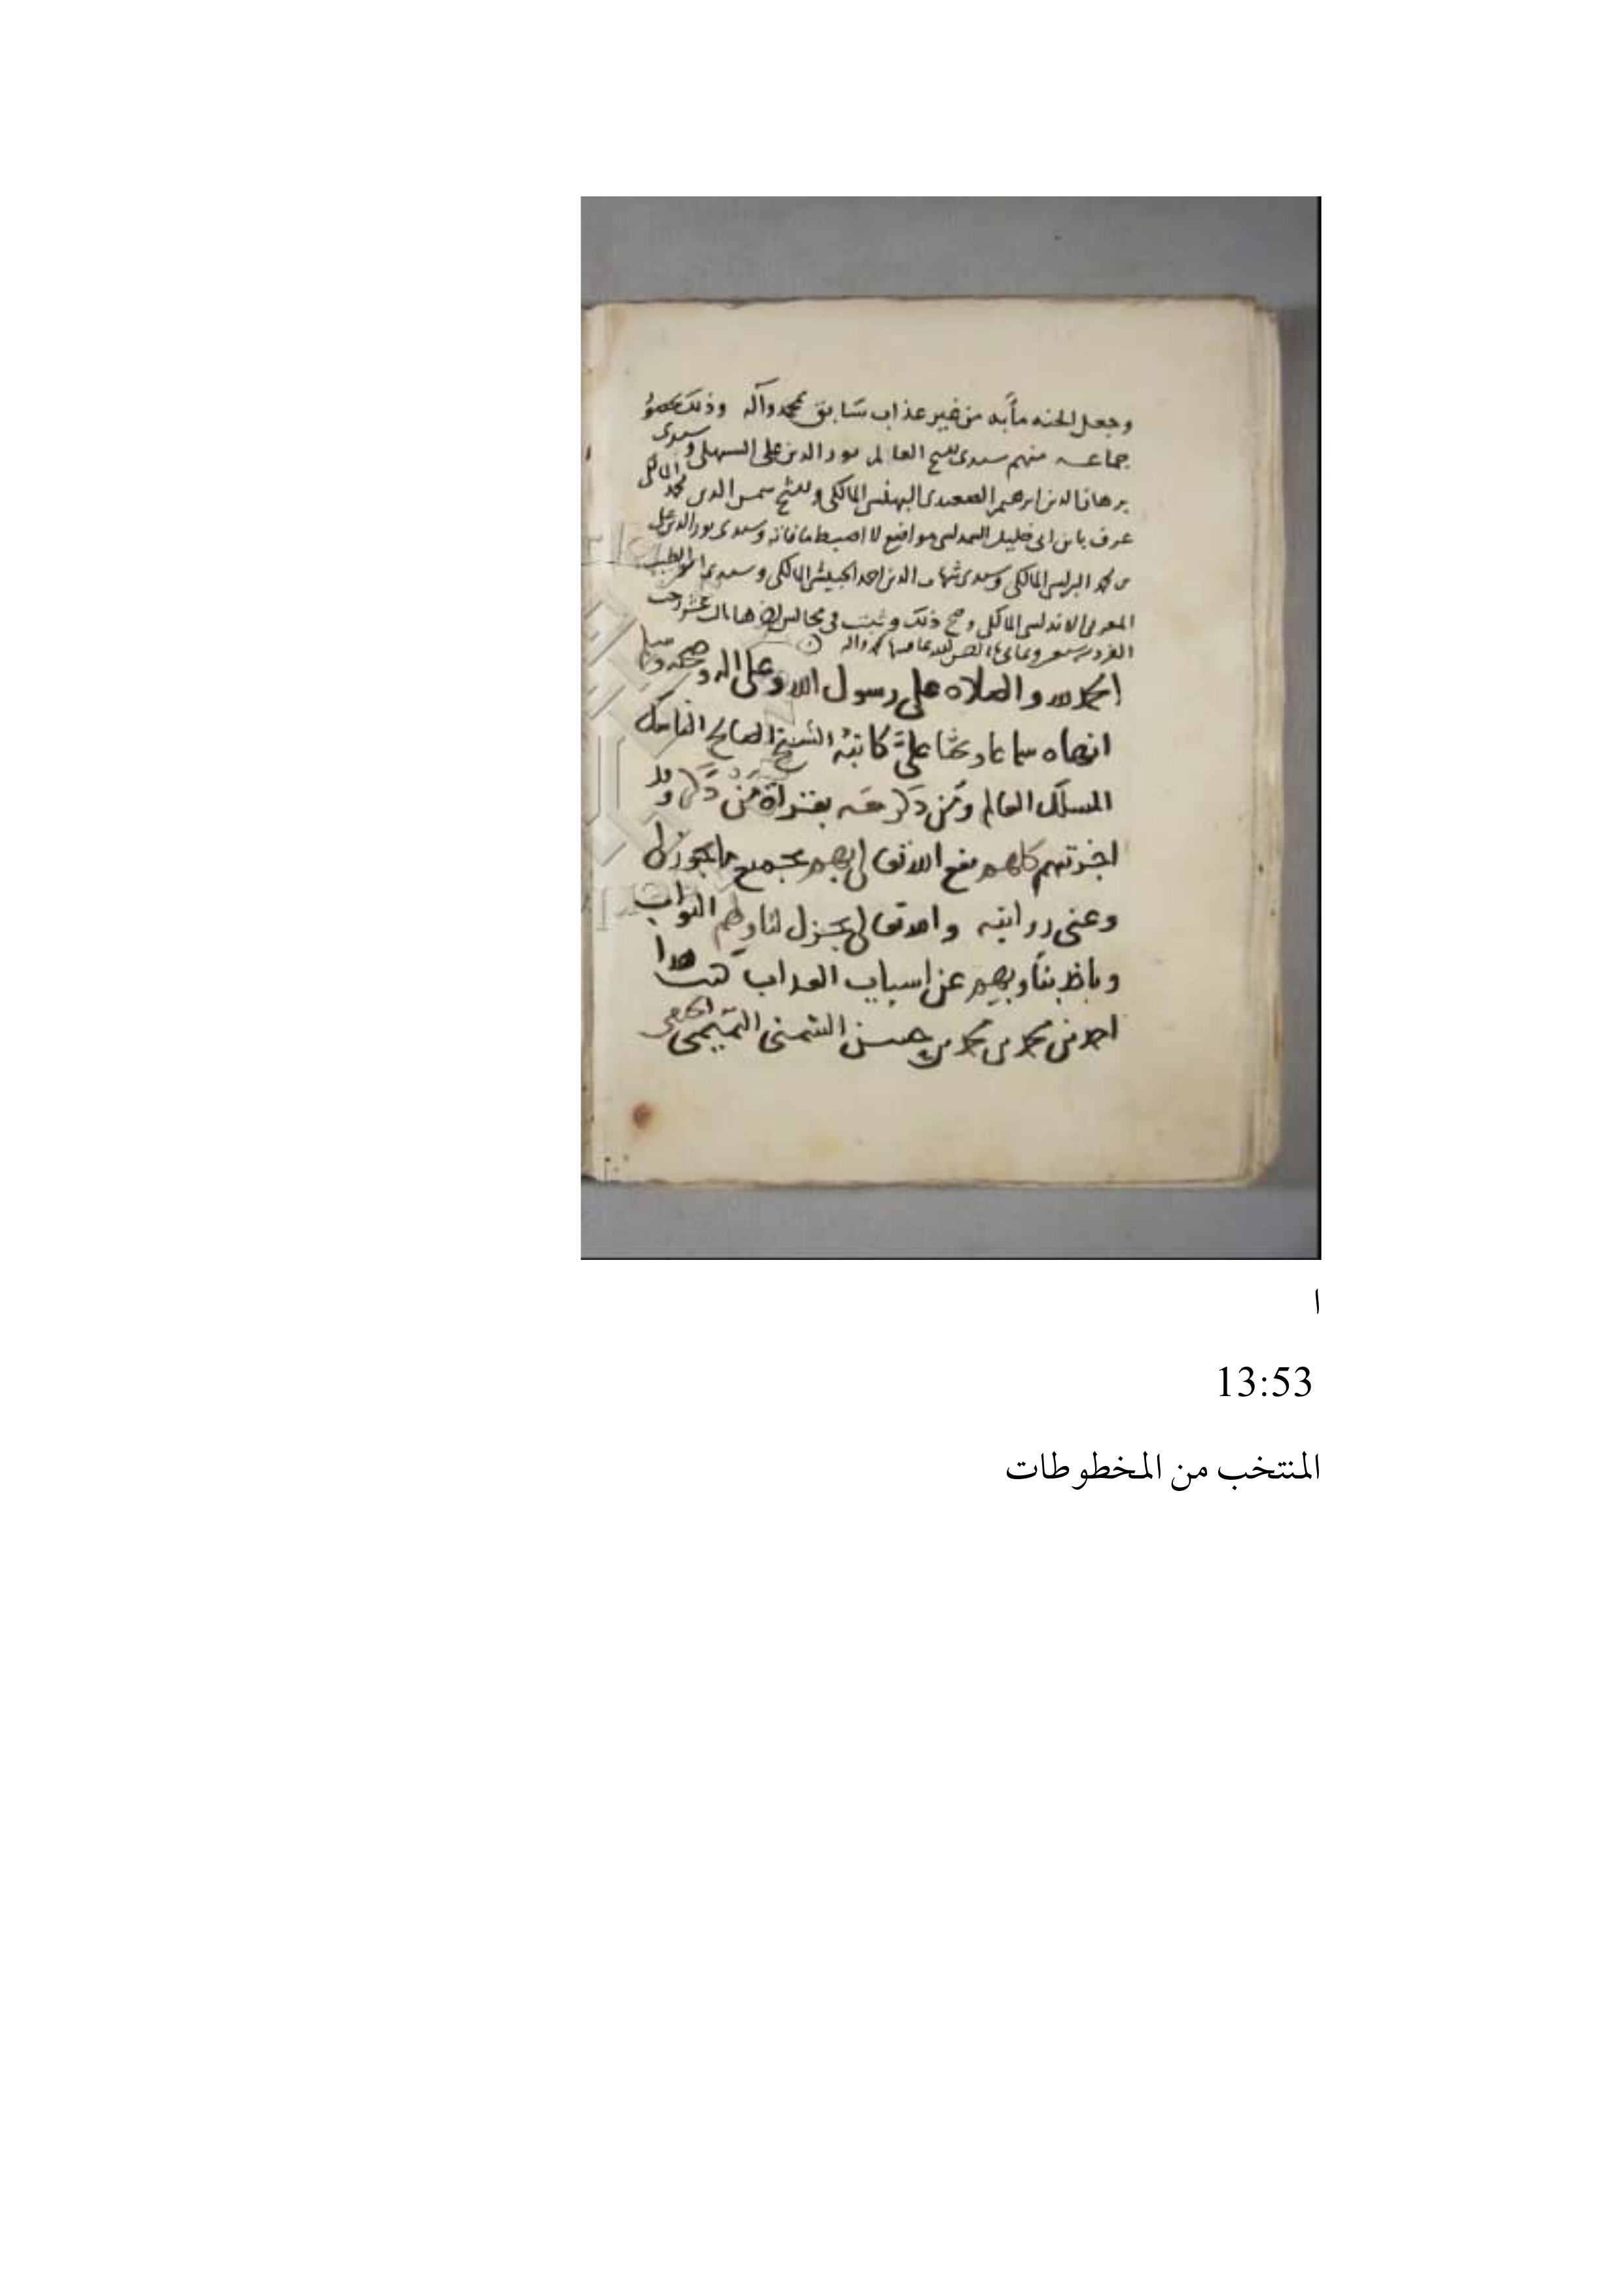 وجعل الجنه مآبه من غير عذاب سابق بمحمد وآله وذلك بحضور
جماعه منهم سيدى الشيخ العالم نور الدين على السهلى و سيدى
برهان الدين ابرهيم الصعيدى المالكى والشيخ شمس الدين محمد المالكى
عرف بابن ابى خليل مواضع لا اضبط ما فاته وسيدى نور الدين على
بن محمد المالكى وسيدى شهاب الدين احمد المالكى وسيدى ابو الطيب
المغربى الاندلسى المالكى وصح ذلك وثبت فى مجالس اخرها ثالث عشر رجب
الفرد وآله
الحمد لله والصلاة على رسول الله وعلى اله وصحبه وسلم
انهاه سماعا وبحثا علىّ كاتبه الشيخ الصالح الناسك
المسلك العالم ومن ذكر معه بقراة من ذكر وقد
اجزتهم كلهم نفع الله تعالى بهم بجميع ما يجوز لى
وعنى روايته والله تعالى يجزل لنا ولهم الثواب
بنا وبهم عن اسباب العذاب كتب هذا
احمد بن محمد بن محمد بن حسن الشمنى التميمى الحنفى
ا
13:53
المنتخب من المخطوطات